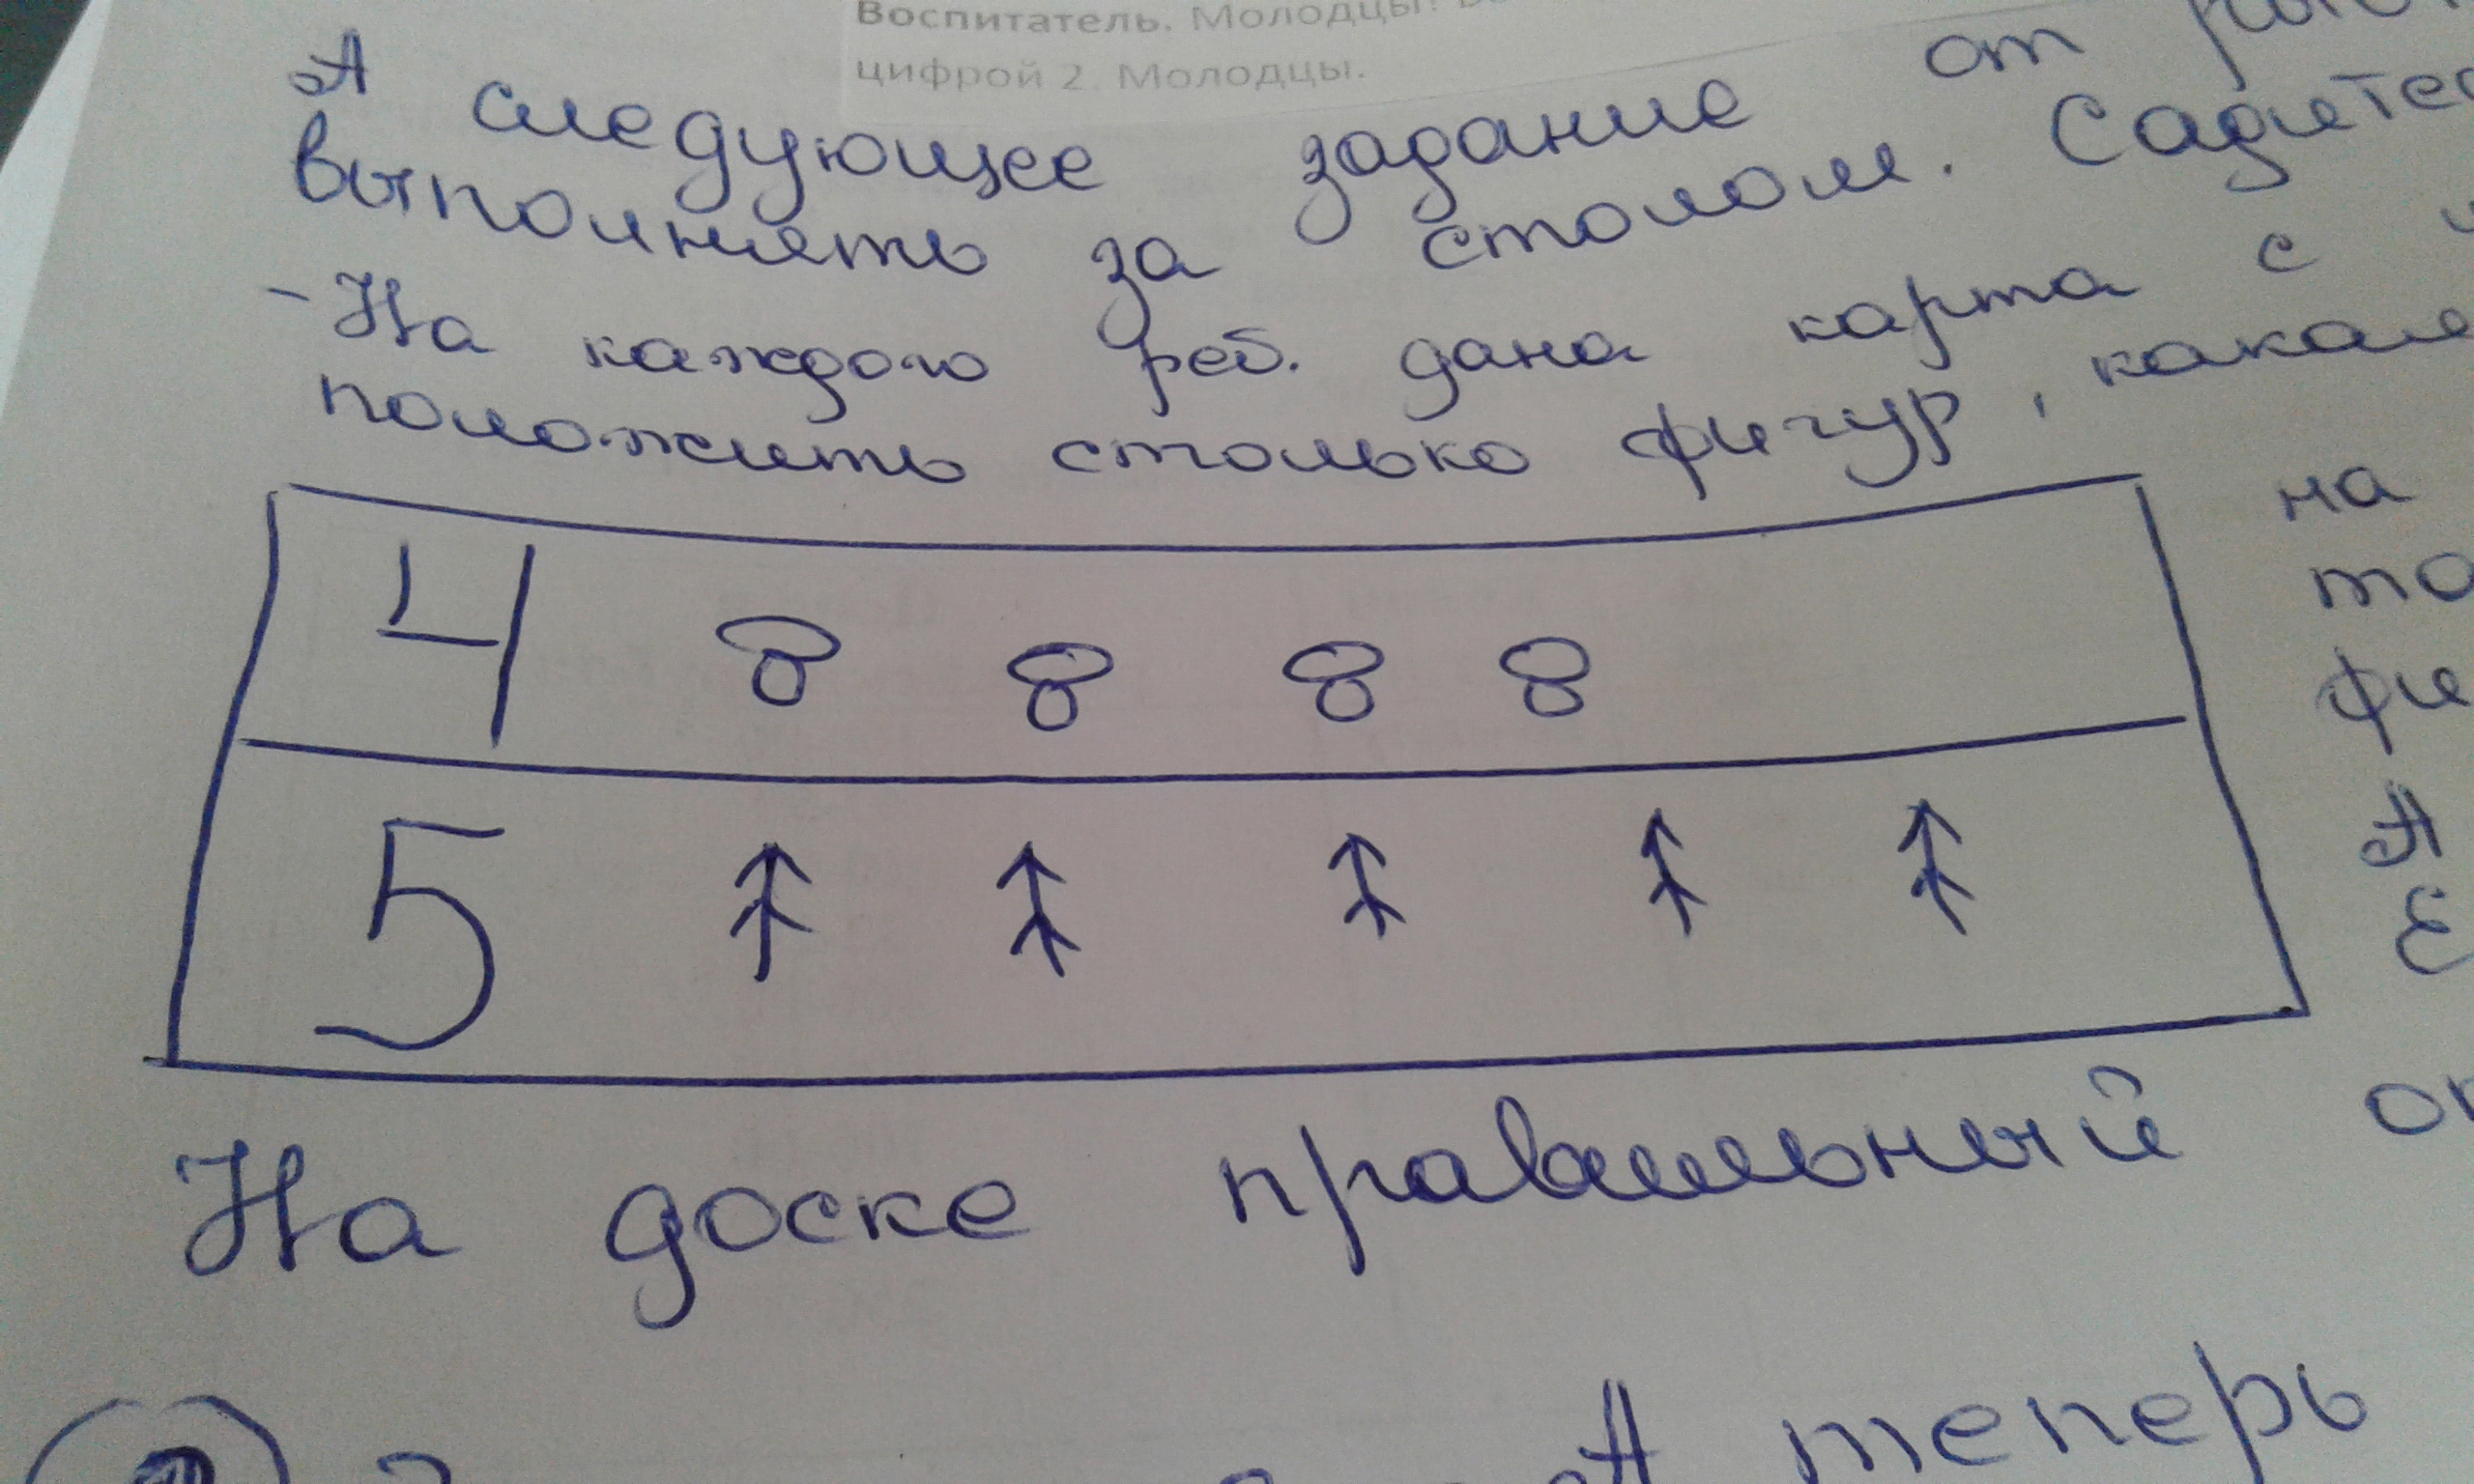 Воспитатель. Молодцы!
цифрой 2. Молодцы.
А следующее задание от
выполнять за столом. Садитес
- На каждого реб. дана карта с
положить столько фигур, какая
на
4
5
А
На доске правильный
А теперь